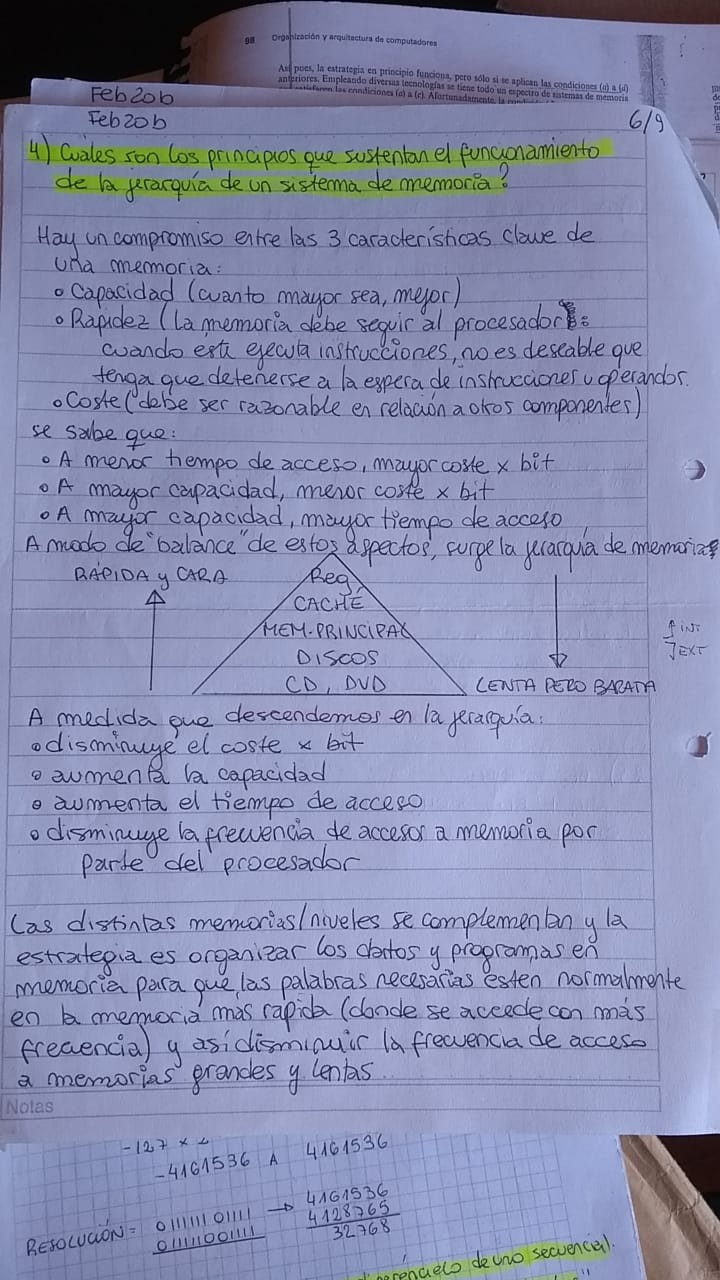 98 Organización y arquitectura de computadores
Así pues, la estrategia en principio funciona, pero sólo si se aplican las condiciones (a) a (d)
anteriores. Empleando diversas tecnologías se tiene todo un espectro de sistemas de memoria
las condiciones (a) a (c). Afortunadamente, la
Feb20b
Feb20b
6/9
4) Cuáles son los principios que sustentan el funcionamiento
de la jerarquía de un sistema de memoria?
Hay un compromiso entre las 3 características clave de
una memoria:
• Capacidad (cuanto mayor sea, mejor)
• Rapidez (La memoria debe seguir al procesador:
cuando está ejecuta instrucciones, no es deseable que
tenga que detenerse a la espera de instrucciones u operandos.
• Coste (debe ser razonable en relación a otros componentes)
se sabe que:
• A menor tiempo de acceso, mayor coste x bit
• A mayor capacidad, menor coste x bit
• A mayor capacidad, mayor tiempo de acceso
A modo de "balance" de estos aspectos, surge la jerarquía de memorias
RÁPIDA y CARA
Reg
CACHÉ
MEM. PRINCIPAL
DISCOS
CD, DVD
↑ INT
EXT
LENTA PERO BARATA
A medida que descendemos en la jerarquía:
• disminuye el coste x bit
• aumenta la capacidad
• aumenta el tiempo de acceso
• disminuye la frecuencia de accesos a memoria por
parte del procesador
Las distintas memorias/niveles se complementan y la
estrategia es organizar los datos y programas en
memoria para que las palabras necesarias esten normalmente
en la memoria más rapida (donde se accede con más
frecuencia) y así disminuir la frecuencia de acceso
a memorias grandes y lentas.
Notas
-127 x
-4161536 A 4161536
RESOLUCIÓN = 01111101111 → 4161536
01111001111 4128765
32768
de uno secuencial.